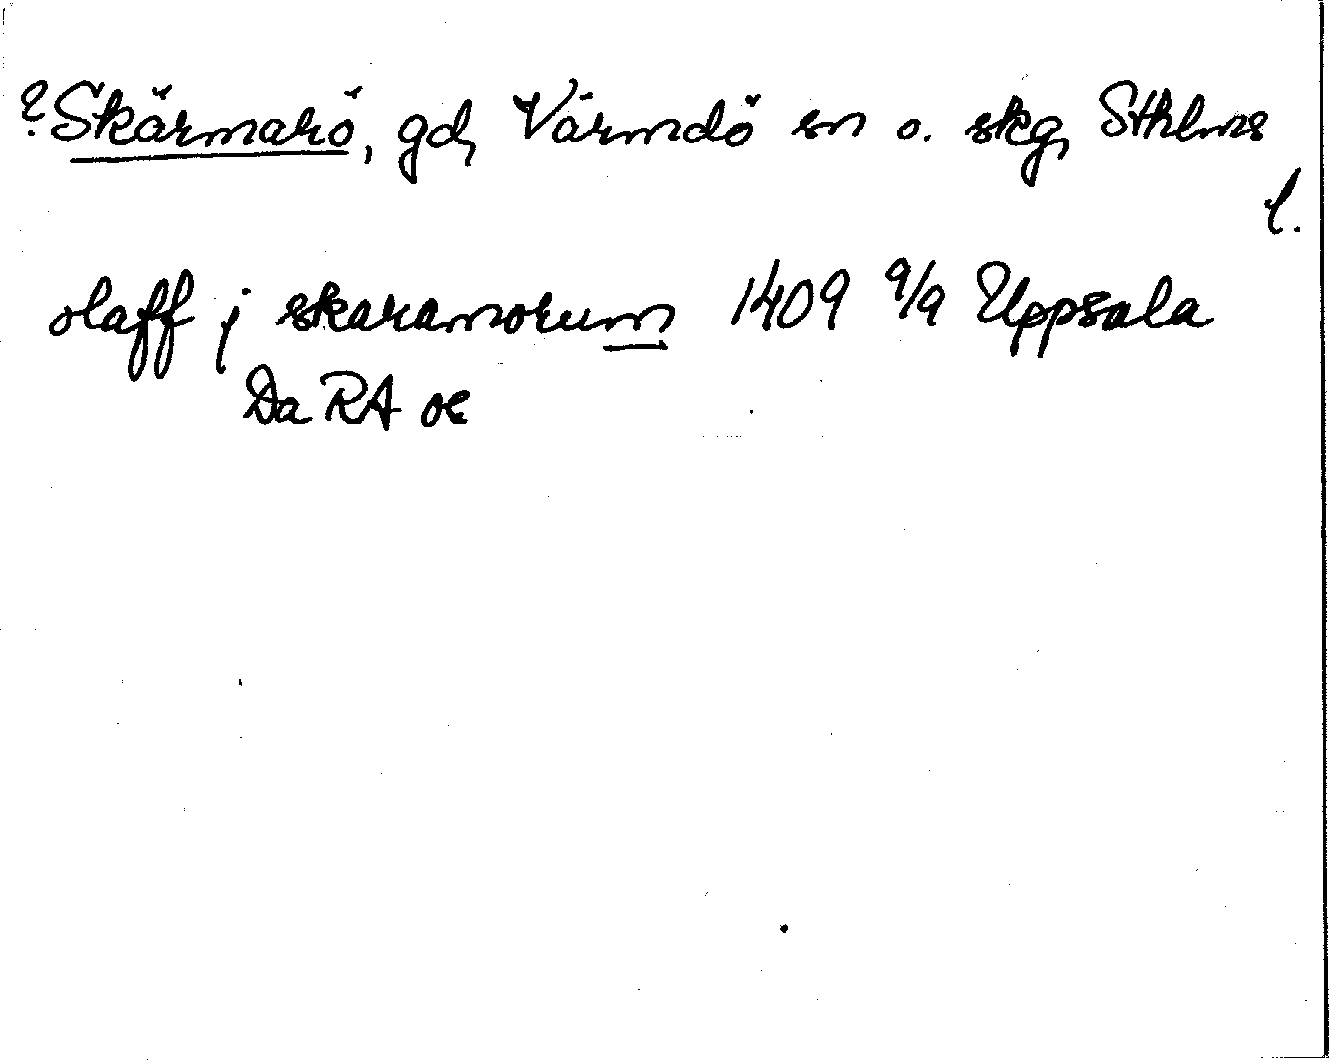 ?Skärmarö, gd, Värmdö sn o. skg, Sthlms
l.
olaff j skaramorum 1409 9/9 Uppsala
Da RA oe